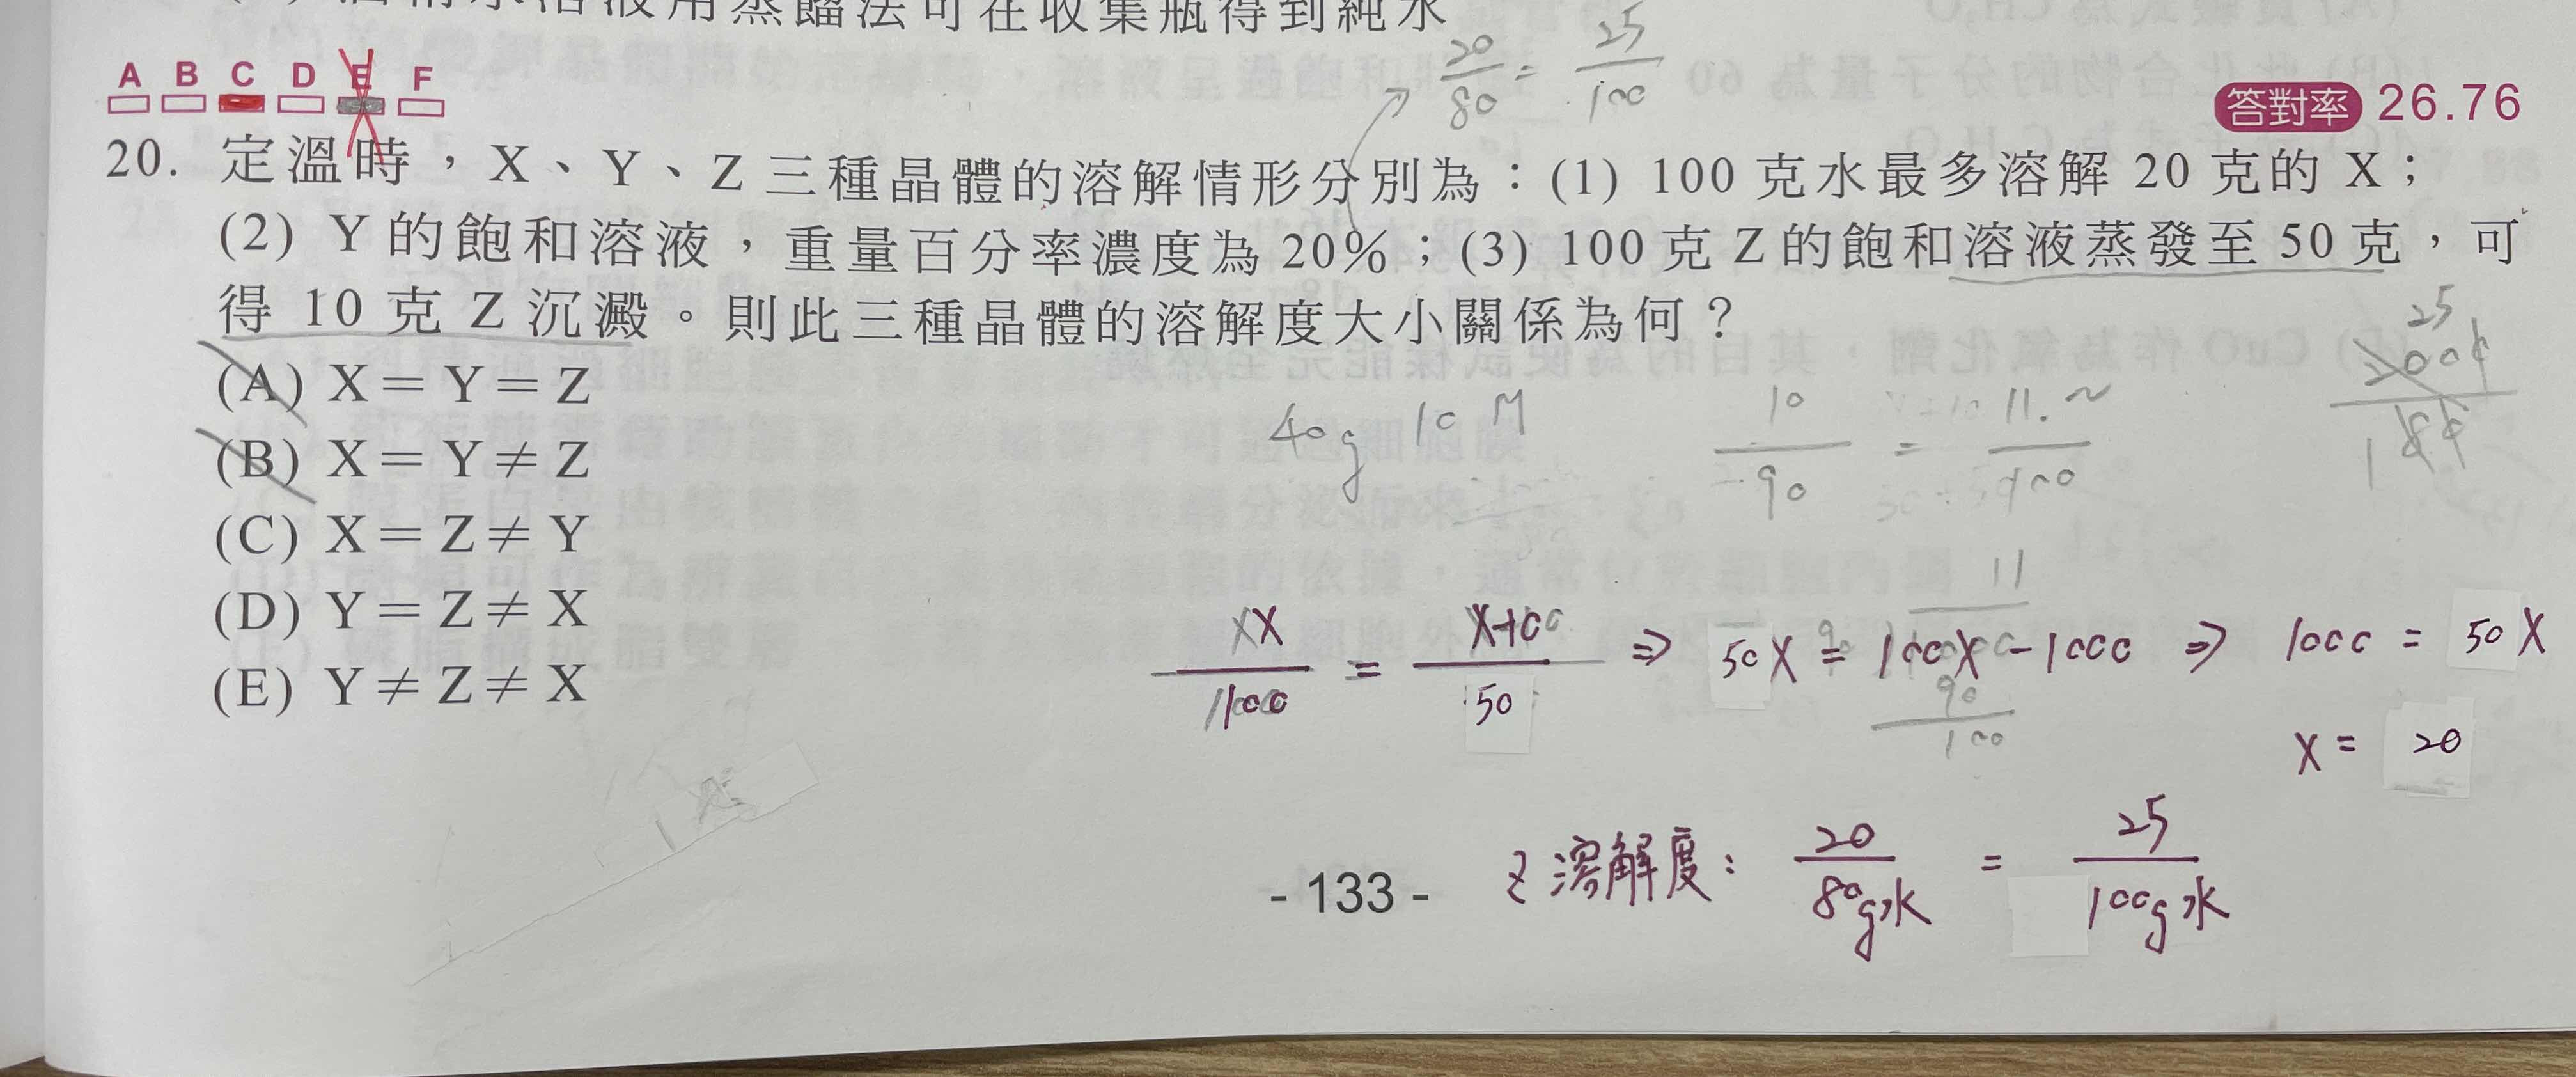 酒精水溶液用蒸餾法可在收集瓶得到純水
20/80 = 25/100
A B C D E F
答對率 26.76
20. 定溫時，X、Y、Z 三種晶體的溶解情形分別為：(1) 100 克水最多溶解 20 克的 X；
(2) Y 的飽和溶液，重量百分率濃度為 20%；(3) 100 克 Z 的飽和溶液蒸發至 50 克，可
得 10 克 Z 沉澱。則此三種晶體的溶解度大小關係為何？
25
(A) X＝Y＝Z
40g 10 M
10/90 = 11.~/100
(B) X＝Y≠Z
(C) X＝Z≠Y
(D) Y＝Z≠X
11
50X = 100X - 1000 ⇒ 1000 = 50X
(E) Y≠Z≠X
90/100
X = 20
Z 溶解度： 20/80g水 = 25/100g水
- 133 -